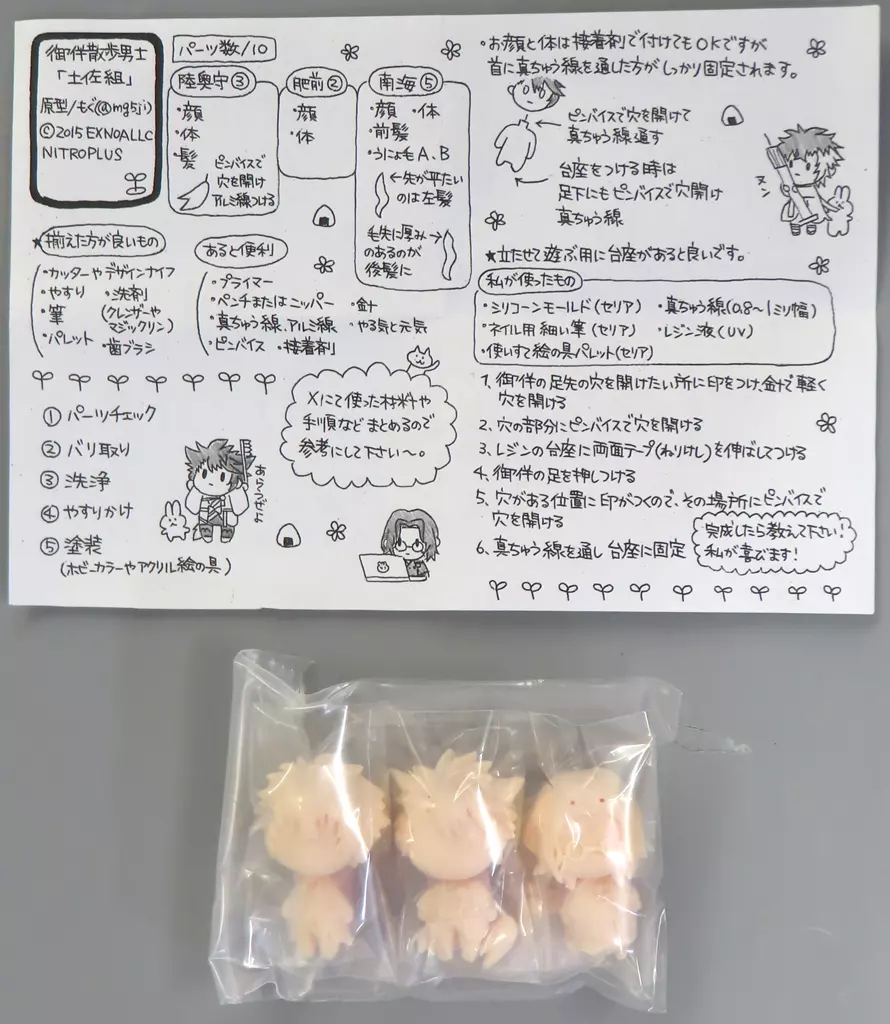 御伴散歩男士
「土佐組」
原型/もぐ(@mg5ji)
©2015 EXNOALLC
NITROPLUS
パーツ数/10
陸奥守③
・顔
・体
・髪
ピンバイスで
穴を開け
アルミ線つける
肥前②
・顔
・体
南海⑤
・顔 ・体
・前髪
・うにょ毛A、B
←先が平たい
のは左髪
毛先に厚み→
のあるのが
後髪に
★揃えた方が良いもの
・カッターやデザインナイフ
・やすり ・洗剤
・筆 (クレンザーや
マジックリン)
・パレット ・歯ブラシ
あると便利
・プライマー
・ペンチまたはニッパー ・針
・真ちゅう線、アルミ線 ・やる気と元気
・ピンバイス ・接着剤
① パーツチェック
② バリ取り
③ 洗浄
④ やすりかけ
⑤ 塗装
(ホビーカラーやアクリル絵の具)
あらくつぜよ
Xにて使った材料や
手順などまとめるので
参考にして下さい〜。
・お顔と体は接着剤で付けてもOKですが
首に真ちゅう線を通した方がしっかり固定されます。
ピンバイスで穴を開けて
真ちゅう線通す
台座をつける時は
足下にもピンバイスで穴開け
真ちゅう線
ヌン
★立たせて遊ぶ用に台座があると良いです。
私が使ったもの
・シリコーンモールド(セリア) ・真ちゅう線(0.8〜1ミリ幅)
・ネイル用細い筆(セリア) ・レジン液(UV)
・使いすて絵の具パレット(セリア)
1、御伴の足先の穴を開けたい所に印をつけ、針で軽く
穴を開ける
2、穴の部分にピンバイスで穴を開ける
3、レジンの台座に両面テープ(ねりけし)を伸ばしてつける
4、御伴の足を押しつける
5、穴がある位置に印がつくので、その場所にピンバイスで
穴を開ける
6、真ちゅう線を通し台座に固定
完成したら教えて下さい!
私が喜びます!